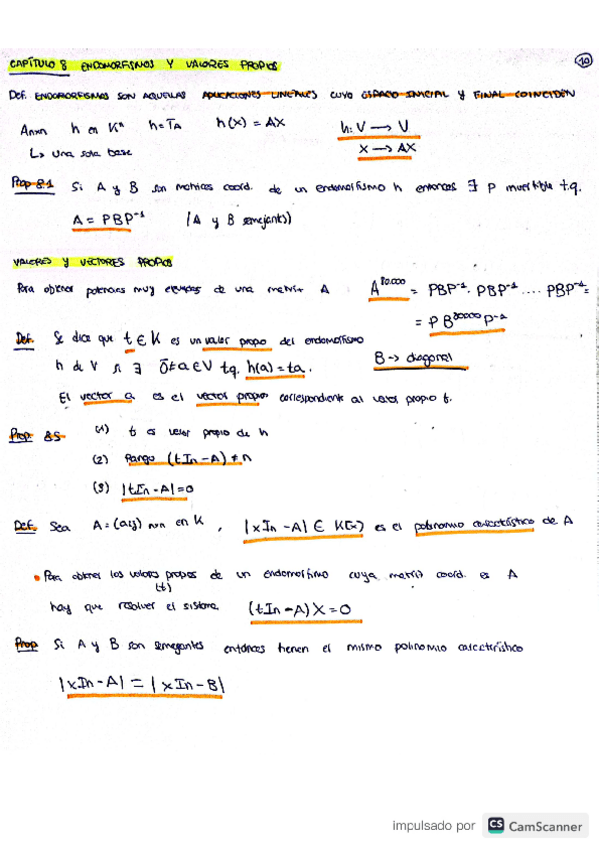 CAPÍTULO 8 ENDOMORFISMOS Y VALORES PROPIOS
10
Def. ENDOMORFISMOS SON AQUELLAS APLICACIONES LINEALES CUYO ESPACIO INICIAL Y FINAL COINCIDEN
Anxn h en Kⁿ h=TA h(x) = AX h: V → V
↳ una sola base X → AX
Prop 8.1 Si A y B son matrices coord. de un endomorfismo h entonces ∃ P invertible t.q.
A = PBP⁻¹ (A y B semejantes)
VALORES Y VECTORES PROPIOS
Para obtener potencias muy elevadas de una matriz A = PBP⁻¹. PBP⁻¹ .... PBP⁻¹ =
= P B P⁻¹
Def. Se dice que t ∈ K es un valor propio del endomorfismo
h de V si ∃ 0̄ ≠ a ∈ V tq. h(a) = ta. B → diagonal
El vector a es el vector propio correspondiente al valor propio t.
Prop. 8.5 (1) t es valor propio de h
(2) Rango (tIn - A) ≠ n
(3) |tIn - A| = 0
Def. Sea A = (aij) nxn en K, |xIn - A| ∈ K[x] es el polinomio característico de A
• Para obtener los valores propios de un endomorfismo cuya matriz coord. es A
(t)
hay que resolver el sistema (tIn - A) X = 0
Prop Si A y B son semejantes entonces tienen el mismo polinomio característico
|xIn - A| = |xIn - B|
impulsado por CS CamScanner